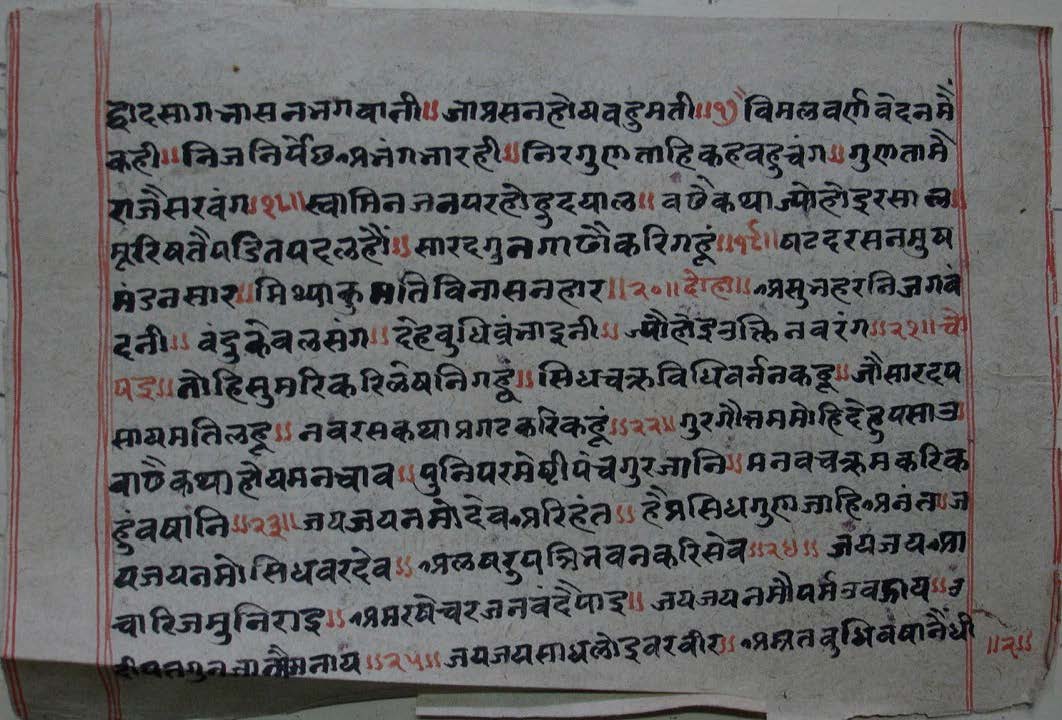 द्वादसागजासनभगवानी॥ जाप्रसनहोयवहुमती॥१७॥ विमलवर्णवेदनमैं
कही॥ निजनिर्पेछअनंगभारही॥ निरगुणताहिकहवहुचंग॥ गुणतामै
राजैसरवंग॥१८॥ स्वामिनजनपरहोहुदयाल॥ वणैकथाज्योहोइरसाल॥
मूरिषतैपडितपदलहौं॥ सारदगुनगाऊँकरिगहूं॥१९॥ षटदरसनमुष
मंडनसार॥ मिथ्याकुमतिविनासनहार॥२०॥दोहा॥ अप्रसुभहरंनिजगवं
दनी॥ वंदुकेवलसंग॥ देहवुधिव्रंभाइनी॥ ज्यौहोइउक्तिनवरंग॥२१॥चौ
पइ॥ तोहिसुमरिकरिलेषनिगहूं॥ सिधचक्रविधिवर्ननकहू॥ जौसारदप
सायमतिलहू॥ नवरसकथाप्रगटकरिकहूं॥२२॥ गुरगौत्तममोहिदेहुपसाउ
वाणैकथाहोयमनचाव॥ पुनिपरमेष्टीपंचगुरजानि॥ मनवचक्रमकरिक
हुंवषांनि॥२३॥ जयजयनमोदेवअरिहंत॥ हैप्रसिधगुणजाहिअनंत॥ ज
यजयनमोसिधवरदेव॥ अलषरुपत्रिभवनकरिसेव॥२४॥ जयजयआ
चारिजमुनिराइ॥ अमरषेचरजनवंदैपाइ॥ जयजयनमौपर्मउवझाय॥ उ
जयजयसाधलोइवरवीर॥ अम्रतवुधिवंषानैंधी
॥२॥